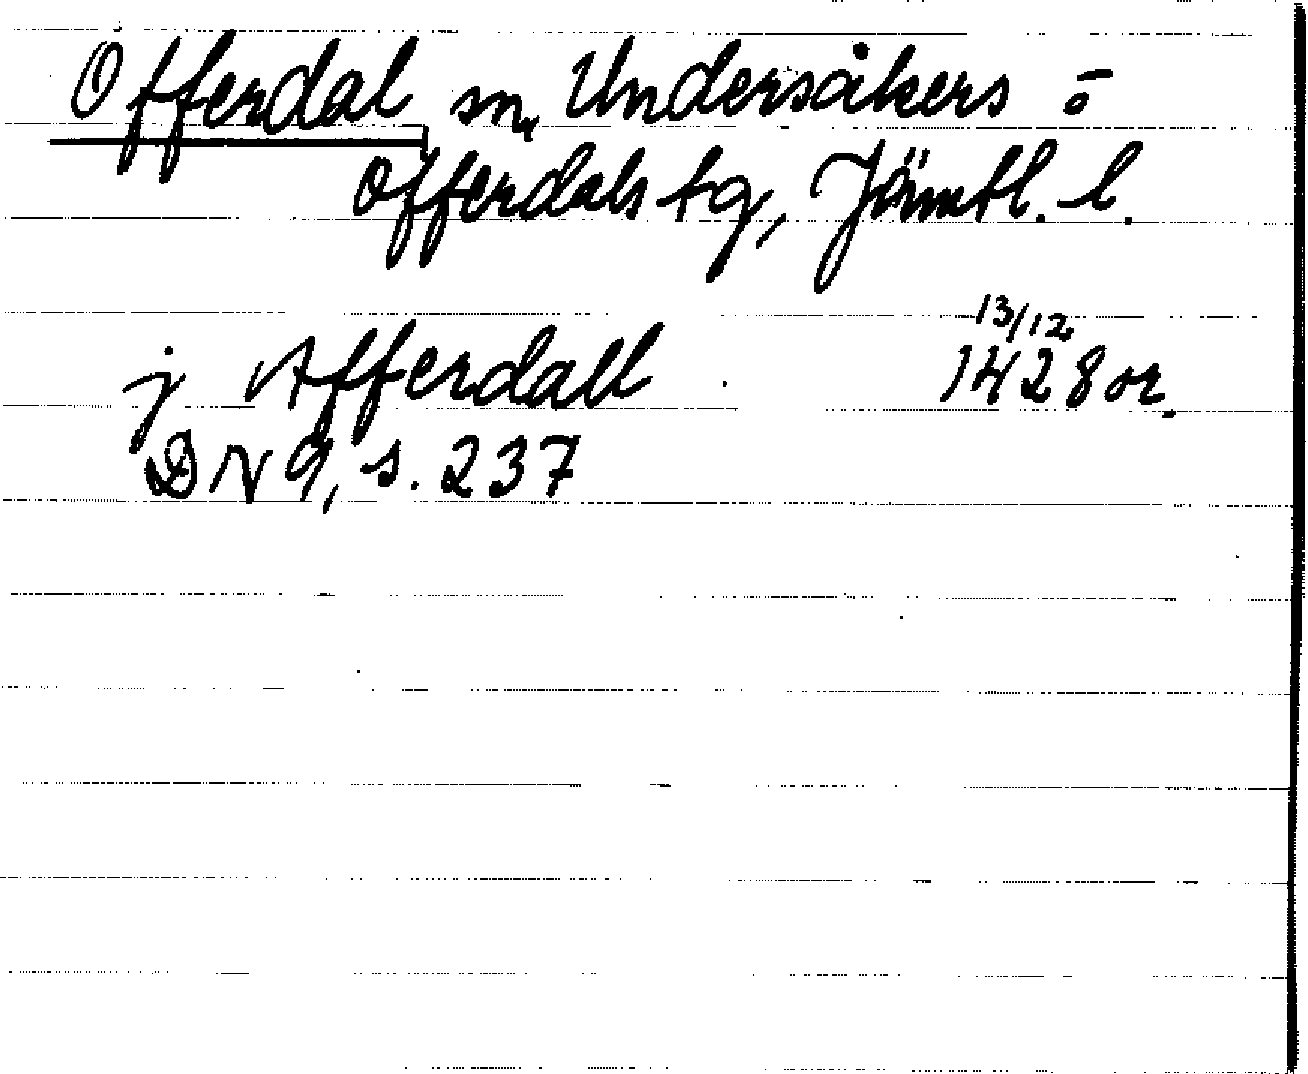 Offerdal sn, Undersåkers o
Offerdals tg, Jämtl. l.
j Afferdall 13/12 1428 or.
DN 9, s. 237